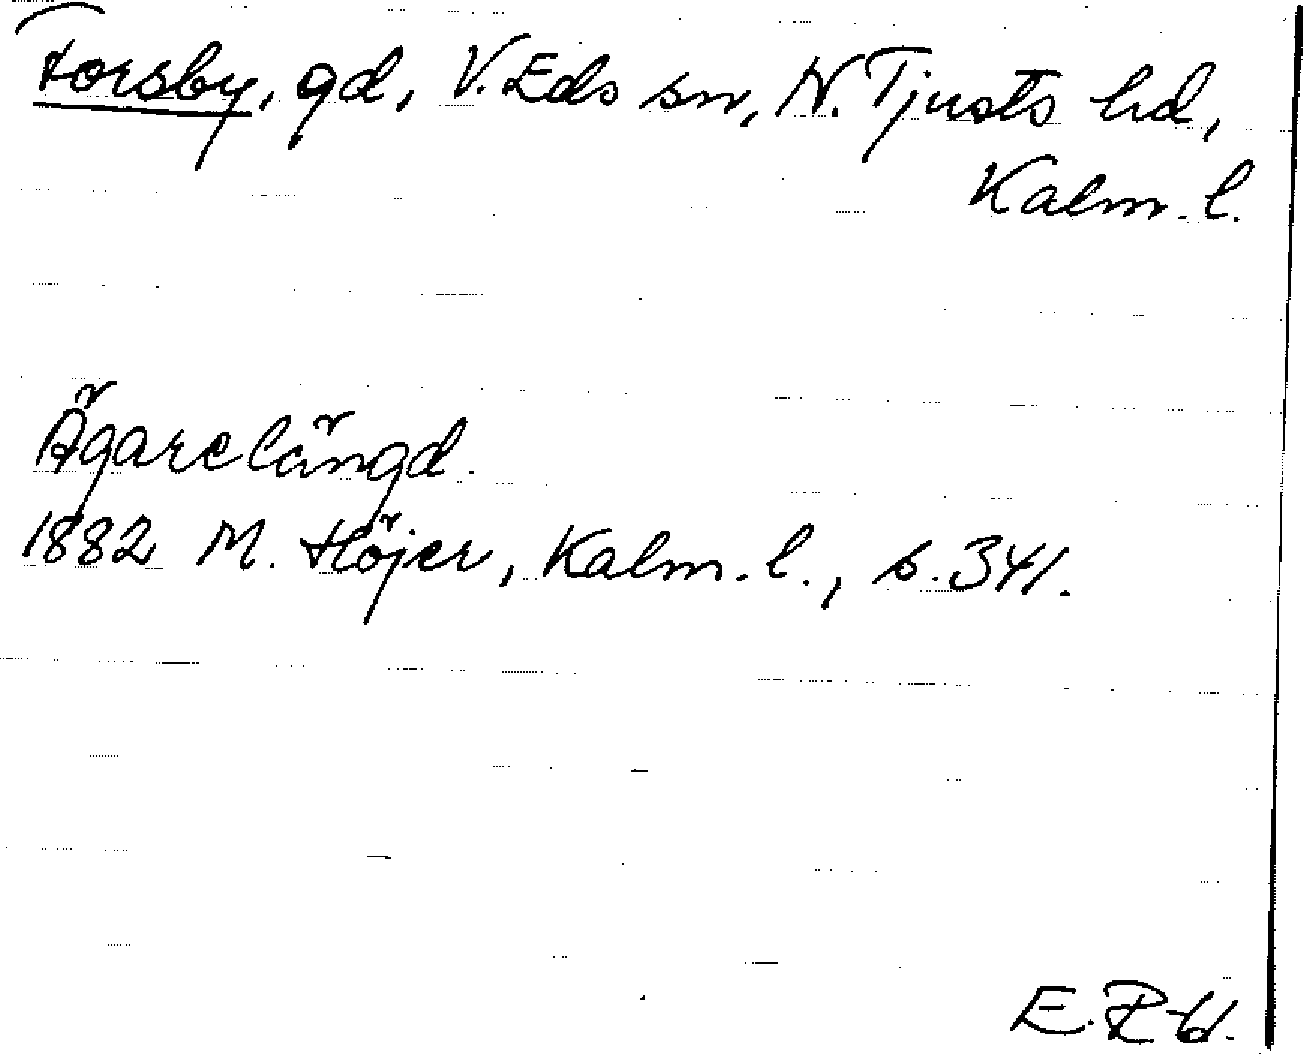 Forsby, gd, V. Eds sn, N. Tjusts hd,
Kalm. l.
Ägarelängd.
1882 M. Höjer, Kalm. l., s. 341.
E. R-bl.